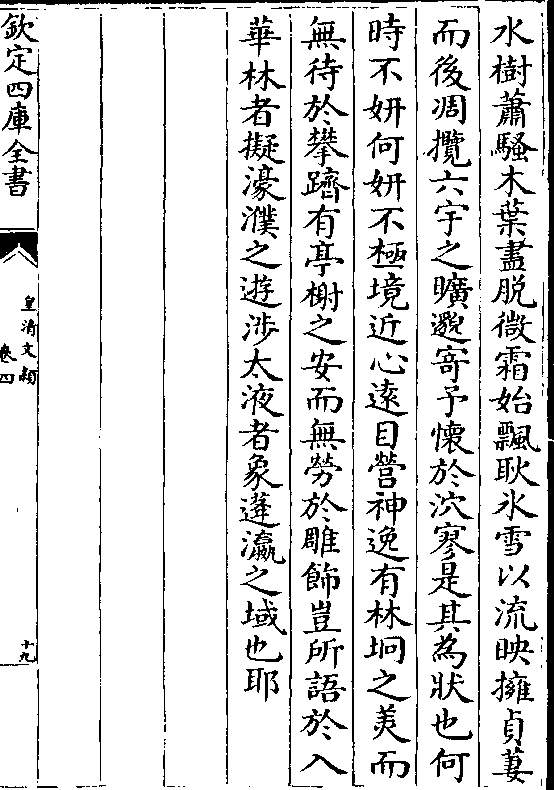 水樹蕭騷木葉盡脱微霜始飄耿氷雪以流映擁貞萋
而後凋攬六宇之曠邈寄予懷於泬寥是其為狀也何
時不妍何妍不極境近心逺目營神逸有林坰之美而
無待於攀躋有亭榭之安而無勞於雕飾豈所語於入
華林者擬濠濮之遊涉太液者象蓬瀛之域也耶
欽定四庫全書
皇清文穎
卷四
十九